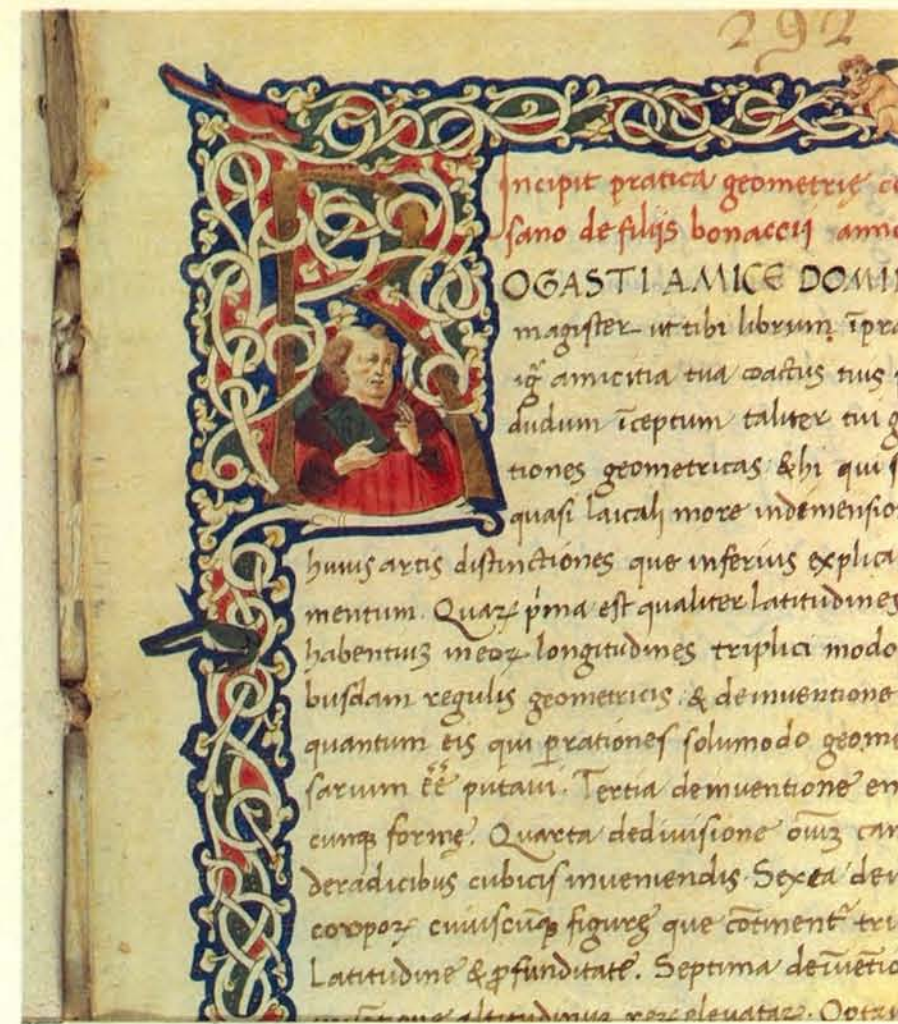 292
Incipit pratica geometrię co
sano de filijs bonaccij anno
ROGASTI AMICE DOMIN
magister ut tibi librum īpra
igͥ amicitia tua coactus tuis
dudum īceptum taliter tui g
tiones geometricas & hi qui s
quasi laicali more indimensio
huius artis distinctiones que inferius explica
mentum. Quaꝝ pͥma est qualiter latitudines
habentiuꝫ ineoꝝ longitudines triplici modo
busdam regulis geometricis & deinuentione
quantum eis qui ꝑrationes solumodo geome
sarium ēē putaui. Tertia deinuentione em
cunqꝫ formę. Quarta dediuisione oīuꝫ cam
deradicibus cubicis inueniendis. Sexta dei
corpoꝝ cuiuscūqꝫ figurę que cōtinent᷑ tri
Latitudine & ꝓfunditate. Septima deīuētio
altitudinum reꝝ eleuataꝝ. Octa